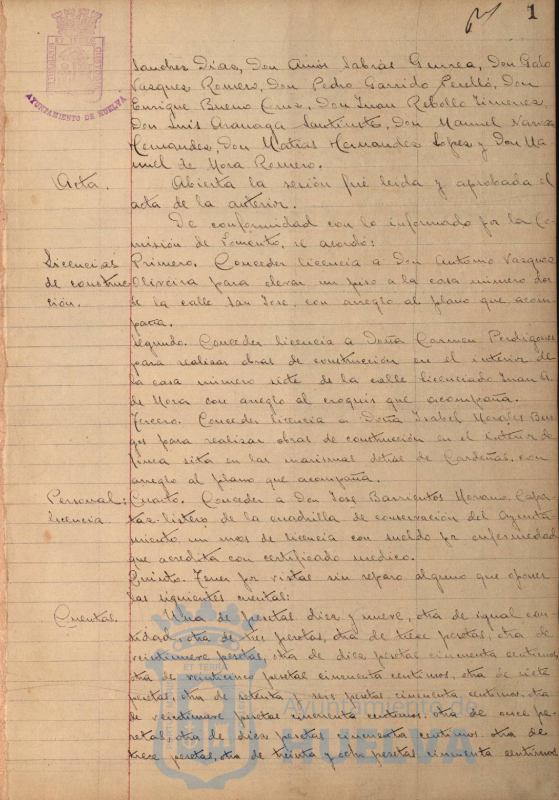 1
AYUNTAMIENTO DE HUELVA
Sanchez Diaz, Don Amós Sabrás Gurrea, Don Galo
Vazquez Romero, Don Pedro Garrido Perelló, Don
Enrique Bueno Cruz, Don Juan Rebollo Jimenez,
Don Luis Don Manuel
Hernandez, Don Matias Hernandez Lopez y Don Ma
nuel de Mora Romero.
Acta.
Abierta la sesión fué leida y aprobada el
acta de la anterior.
De conformidad con lo informado por la Co
misión de Fomento, se acordó:
Licencias de construc
ción.
Primero. Conceder licencia a Don Antonio Vazquez
Oliveira para elevar un piso a la casa número dos
de la calle San José, con arreglo al plano que acom
paña.
Segundo. Conceder licencia a Doña Carmen Perdigones
para realizar obras de construcción en el interior de
la casa número siete de la calle licenciado Juan A.
de Mora con arreglo al croquis que acompaña.
Tercero. Conceder licencia a Doña Isabel Morales Bur
gos para realizar obras de construcción en el interior de
finca sita en las marismas detras de Cardeñas, con
arreglo al plano que acompaña.
Personal:
Licencia
Cuarto. Conceder a Don José Barrientos Morano, Capa
taz-listero de la cuadrilla de conservación del Ayunta
miento, un mes de licencia con sueldo por enfermedad
que acredita con certificado medico.
Quinto. Tener por vistas sin reparo alguno que oponer
las siguientes cuentas:
Cuentas.
Una de pesetas diez y nueve, otra de igual can
tidad, otra de tres pesetas, otra de trece pesetas, otra de
veintinueve pesetas, otra de diez pesetas cincuenta centimos,
otra de veinticinco pesetas cincuenta centimos, otra de siete
pesetas, otra de setenta y seis pesetas cincuenta centimos, otra
de veintinueve pesetas cincuenta centimos, otra de once pe
setas, otra de diez pesetas cincuenta centimos, otra de
trece pesetas, otra de treinta y ocho pesetas cincuenta centimos
ET TERRA
Ayuntamiento de
HUELVA